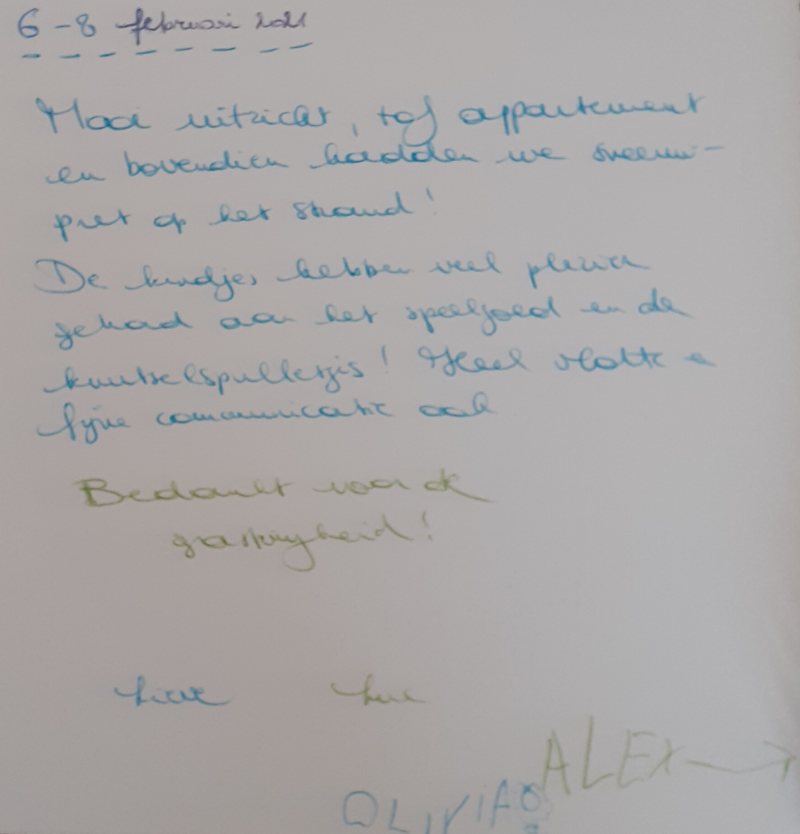 6-8 februari 2021
Mooi uitzicht, tof appartement
en bovendien hadden we sneeuw-
pret op het strand!
De kindjes hebben veel plezier
gehad aan het speelgoed en de
knutselspulletjes! Heel vlotte e
fijne communicatie ook
Bedankt voor de
gastvrijheid!
Lieve Luc
ALEX
OLIVIA